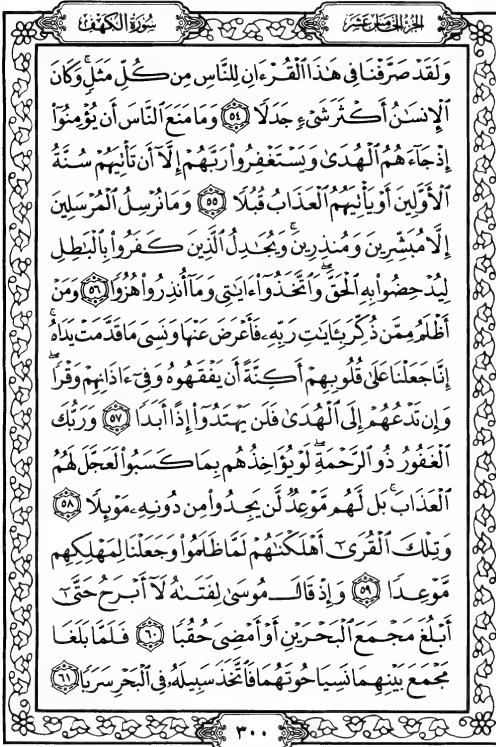 سُورَةُ الكَهْفِ
الجُزْءُ الخَامِسَ عَشَرَ
وَلَقَدْ صَرَّفْنَا فِى هَٰذَا ٱلْقُرْءَانِ لِلنَّاسِ مِن كُلِّ مَثَلٍ ۚ وَكَانَ
ٱلْإِنسَٰنُ أَكْثَرَ شَىْءٍ جَدَلًا ٥٤ وَمَا مَنَعَ ٱلنَّاسَ أَن يُؤْمِنُوٓا۟
إِذْ جَآءَهُمُ ٱلْهُدَىٰ وَيَسْتَغْفِرُوا۟ رَبَّهُمْ إِلَّآ أَن تَأْتِيَهُمْ سُنَّةُ
ٱلْأَوَّلِينَ أَوْ يَأْتِيَهُمُ ٱلْعَذَابُ قُبُلًا ٥٥ وَمَا نُرْسِلُ ٱلْمُرْسَلِينَ
إِلَّا مُبَشِّرِينَ وَمُنذِرِينَ ۚ وَيُجَٰدِلُ ٱلَّذِينَ كَفَرُوا۟ بِٱلْبَٰطِلِ
لِيُدْحِضُوا۟ بِهِ ٱلْحَقَّ ۖ وَٱتَّخَذُوٓا۟ ءَايَٰتِى وَمَآ أُنذِرُوا۟ هُزُوًا ٥٦ وَمَنْ
أَظْلَمُ مِمَّن ذُكِّرَ بِـَٔايَٰتِ رَبِّهِۦ فَأَعْرَضَ عَنْهَا وَنَسِىَ مَا قَدَّمَتْ يَدَاهُ ۚ
إِنَّا جَعَلْنَا عَلَىٰ قُلُوبِهِمْ أَكِنَّةً أَن يَفْقَهُوهُ وَفِىٓ ءَاذَانِهِمْ وَقْرًا ۖ
وَإِن تَدْعُهُمْ إِلَى ٱلْهُدَىٰ فَلَن يَهْتَدُوٓا۟ إِذًا أَبَدًا ٥٧ وَرَبُّكَ
ٱلْغَفُورُ ذُو ٱلرَّحْمَةِ ۖ لَوْ يُؤَاخِذُهُم بِمَا كَسَبُوا۟ لَعَجَّلَ لَهُمُ
ٱلْعَذَابَ ۚ بَل لَّهُم مَّوْعِدٌ لَّن يَجِدُوا۟ مِن دُونِهِۦ مَوْئِلًا ٥٨
وَتِلْكَ ٱلْقُرَىٰٓ أَهْلَكْنَٰهُمْ لَمَّا ظَلَمُوا۟ وَجَعَلْنَا لِمَهْلِكِهِم
مَّوْعِدًا ٥٩ وَإِذْ قَالَ مُوسَىٰ لِفَتَىٰهُ لَآ أَبْرَحُ حَتَّىٰٓ
أَبْلُغَ مَجْمَعَ ٱلْبَحْرَيْنِ أَوْ أَمْضِىَ حُقُبًا ٦٠ فَلَمَّا بَلَغَا
مَجْمَعَ بَيْنِهِمَا نَسِيَا حُوتَهُمَا فَٱتَّخَذَ سَبِيلَهُۥ فِى ٱلْبَحْرِ سَرَبًا ٦١
٣٠٠